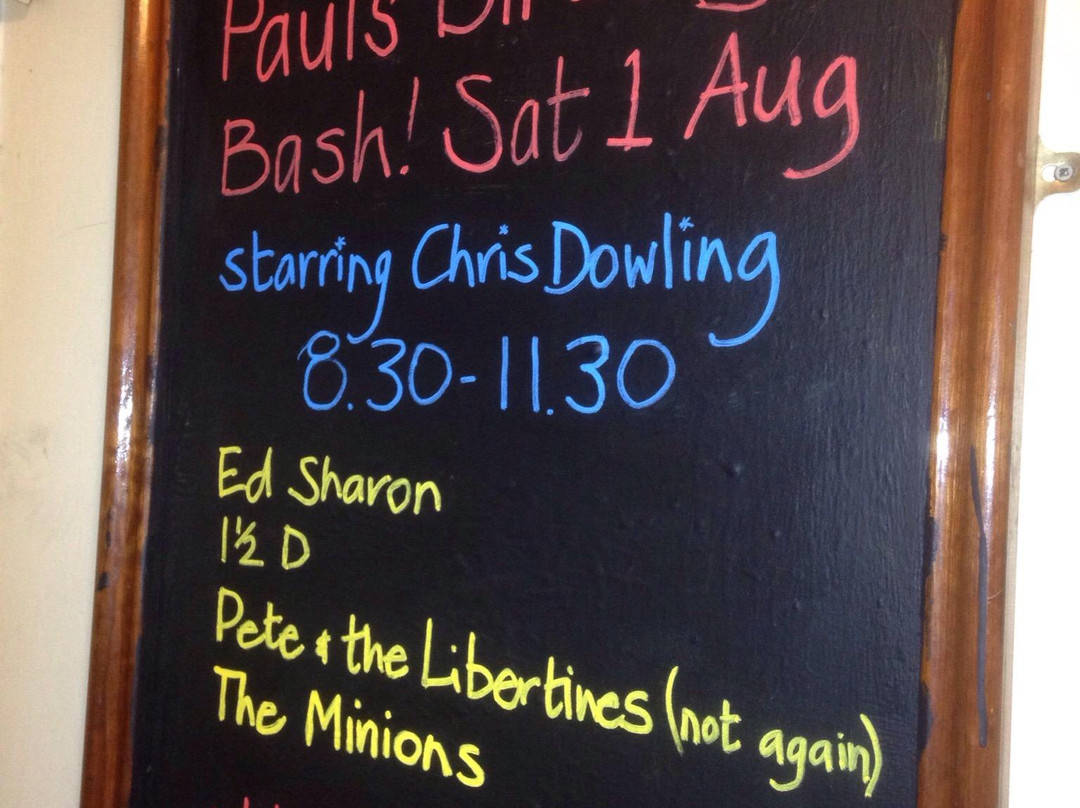 Pauls
Bash! Sat 1 Aug
starring Chris Dowling
8.30-11.30
Ed Sharon
1½ D
Pete & the Libertines (not again)
The Minions